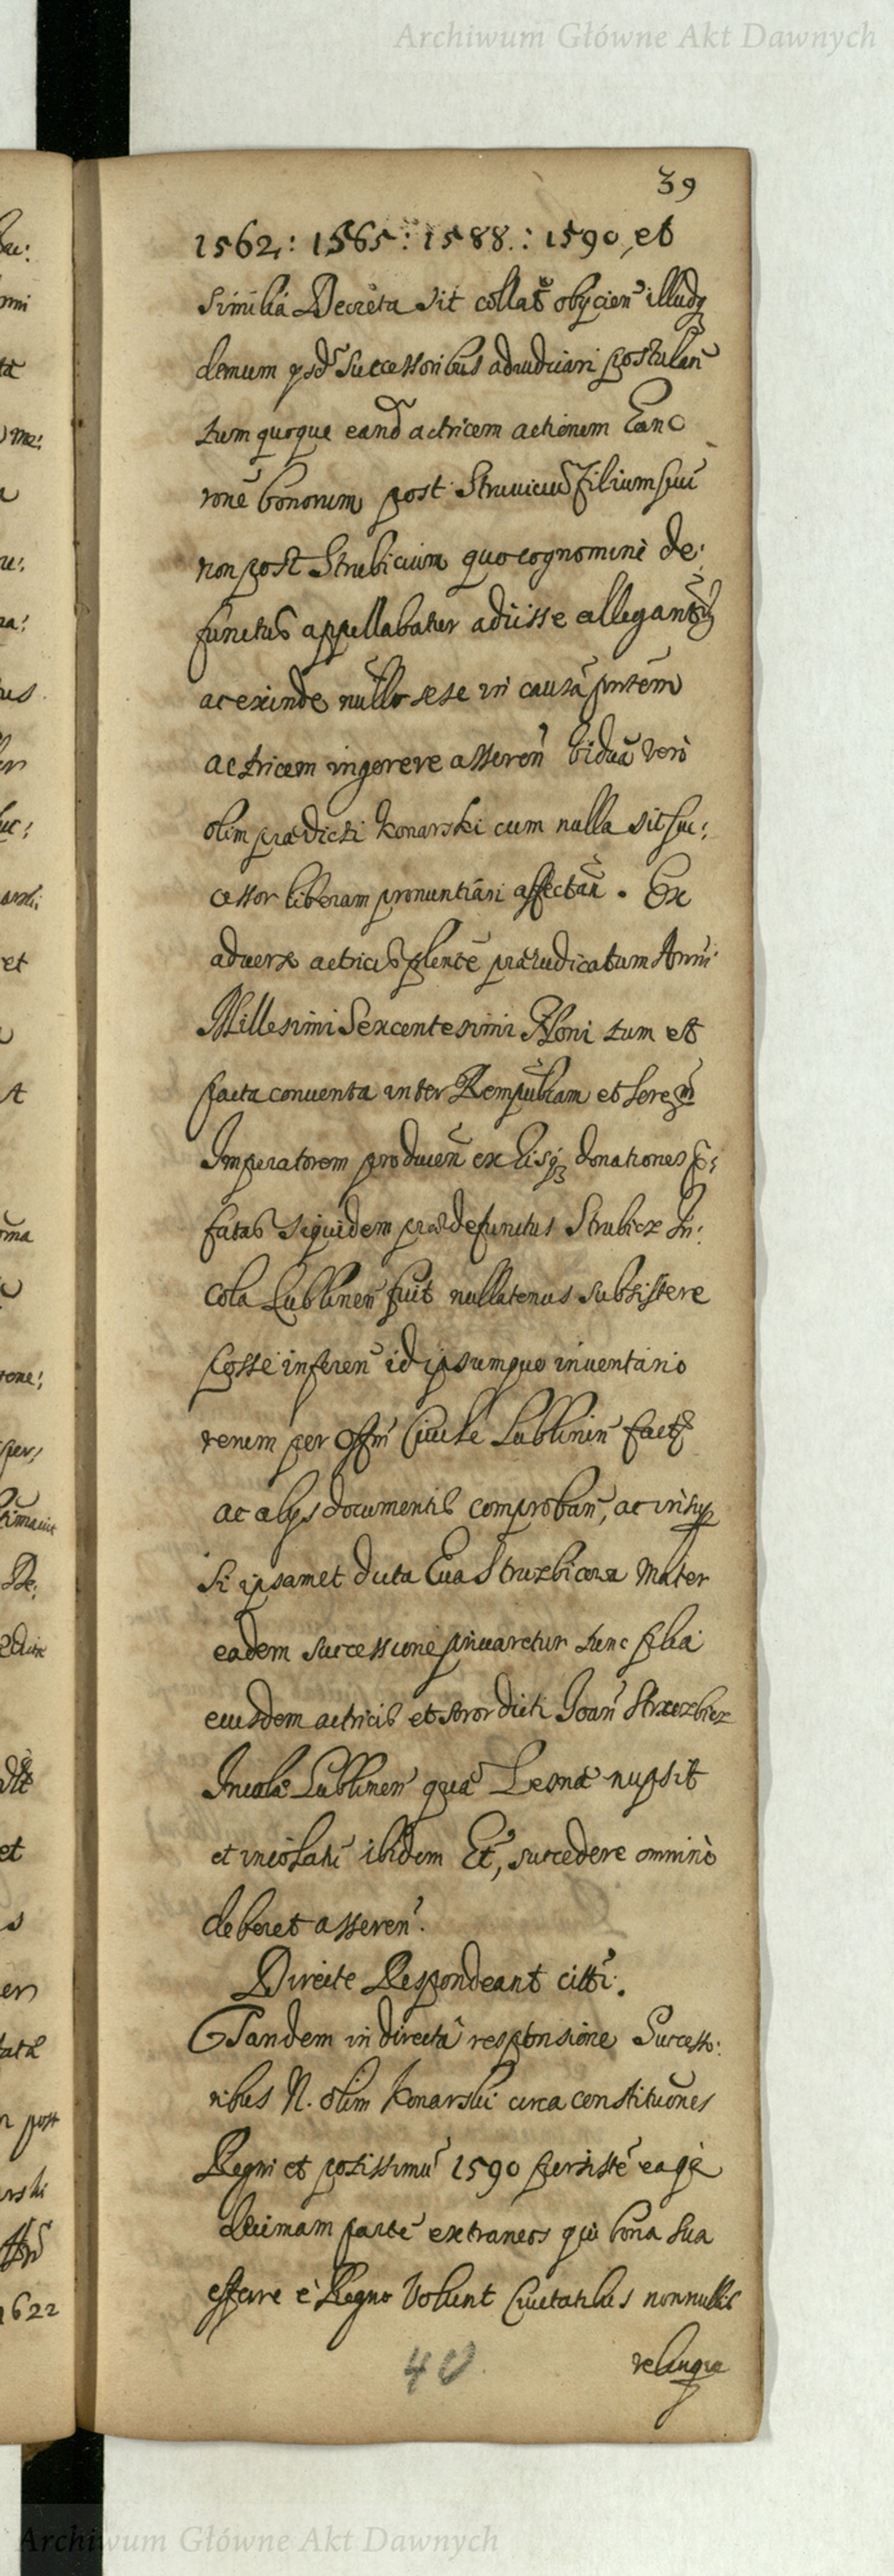 Archiwum Główne Akt Dawnych
39
1562: 1565: 1588.: 1590, et
similia Decreta sit collat obÿcien illudq
demum successoribus adiudicari postulan
tum quoque eand actricem actionem
rone bonorum post Struvicium filium suu
non post Strubicium quo cognomine de:
functus appellabatur adiisse allegant
ac exinde nullo sese in causa pntem
actricem ingerere asseren vero
olim prædicti Konarski cum nulla sit suc:
cessor liberam pronuntiari affectan. Ex
adverso actricis plente præiudicatum Anni
Millesimi Sexcentesimi Noni tum et
pacta conventa inter Rempublicam et Serez
Imperatorem producen ex Eisq donationes
fatas siquidem prædefunctus Strubicz In:
cola Lublinen fuit nullatenus subsistere
posse inferen id ipsumque inventario
rerum per Offm Civile Lublinen fact
ac alÿs documentis comproban, ac insup
Si ipsamet dicta Eva Struzbiczowa Mater
eadem successione privaretur tunc filia
eiusdem actricis et soror dicti Joan Struzbicz
Incolæ Lublinen quæ Lesnæ nupsit
et incolatu ibidem Et, succedere omnino
deberet asseren.
Directe Respondeant citti.
Tandem in directa responsione Successo:
ribus N. olim Konarski circa constitutiones
Regni et potissimu 1590 persiste
decimam parte extraneos qui bona sua
efferre è Regno Volunt Civitatibus nonnullis
40